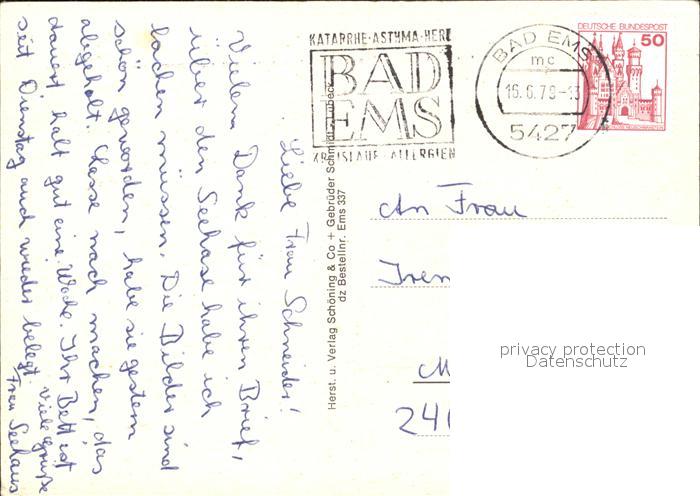 Liebe Frau Schneider!
Vielen Dank für ihren Brief,
über den Seehase habe ich
lachen müssen. Die Bilder sind
schön geworden, habe sie gestern
abgeholt. Lasse nach machen, das
dauert halt gut eine Woche. Ihr Bett ist
seit Dienstag auch wieder belegt. Viele Grüße
Frau Seehaus
Herst. u. Verlag Schöning & Co + Gebrüder Schmidt, Lübeck
dz Bestellnr. Ems 337
KATARRHE·ASTHMA·HERZ
BAD
EMS
KREISLAUF·ALLERGIEN
BAD EMS
mc
15.6.79-13
5427
DEUTSCHE BUNDESPOST
50
An Frau
Iren
M
241
privacy protection
Datenschutz